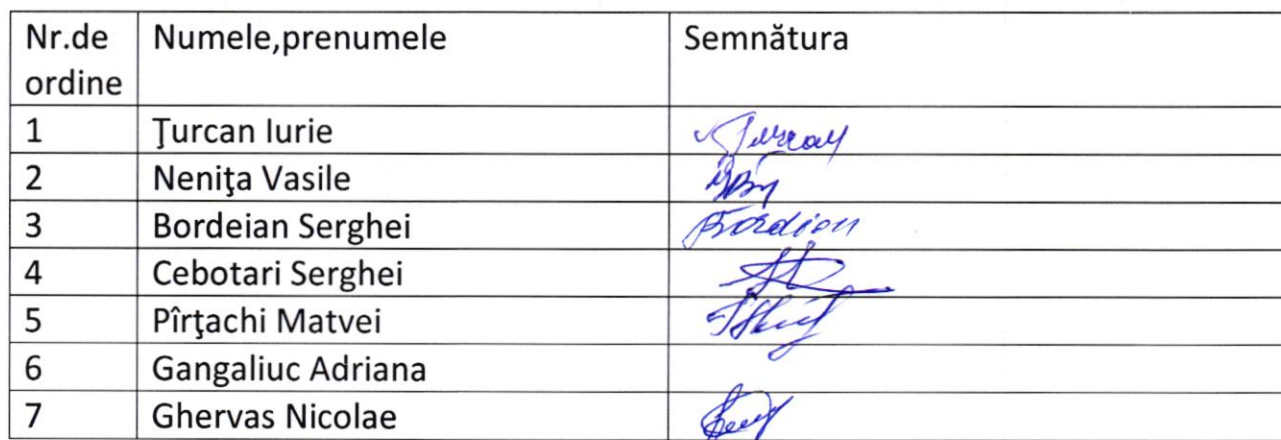 Nr.de ordine Numele,prenumele Semnătura
1 Ţurcan Iurie
2 Neniţa Vasile
3 Bordeian Serghei Bordian
4 Cebotari Serghei
5 Pîrţachi Matvei
6 Gangaliuc Adriana
7 Ghervas Nicolae